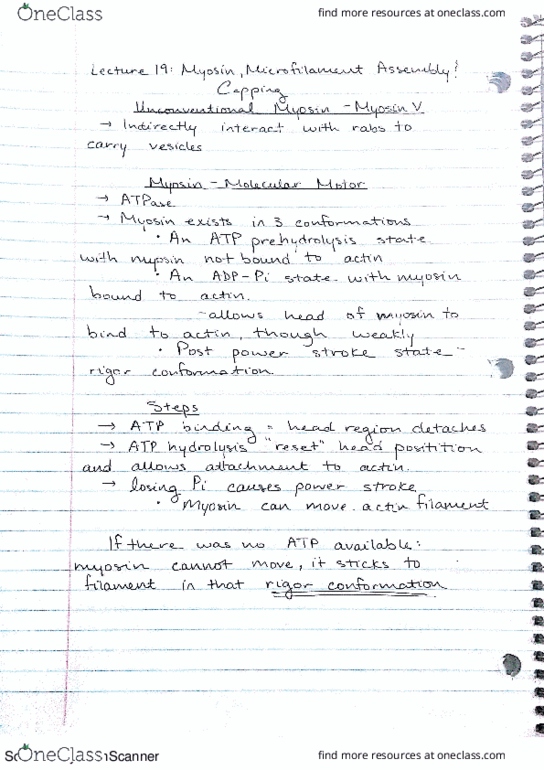 OneClass
find more resources at oneclass.com
Lecture 19: Myosin, Microfilament Assembly &
Capping
Unconventional Myosin - Myosin V
→ Indirectly interact with rabs to
carry vesicles
Myosin - Molecular Motor
→ ATPase
→ Myosin exists in 3 conformations
• An ATP prehydrolysis state
with myosin not bound to actin
• An ADP-Pi state with myosin
bound to actin.
- allows head of myosin to
bind to actin, though weakly
• Post power stroke state -
rigor conformation.
Steps
→ ATP binding = head region detaches
→ ATP hydrolysis "reset" head positition
and allows attachment to actin.
→ losing Pi causes power stroke
• Myosin can move actin filament
If there was no ATP available:
myosin cannot move, it sticks to
filament in that rigor conformation
OneClass
Scanner
find more resources at oneclass.com